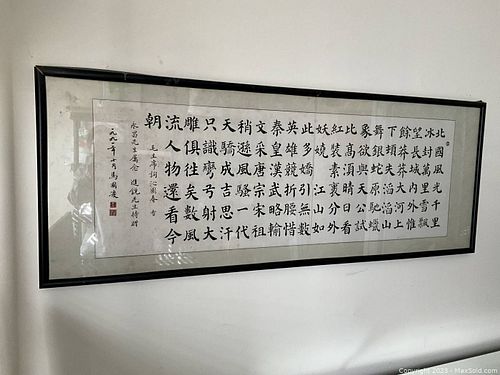 北國風光千里
冰封萬里雪飄
望長城內外惟
餘莽莽大河上
下頓失滔滔山
舞銀蛇原馳蠟
象欲與天公試
比高須晴日看
紅裝素裹分外
妖嬈江山如
此多嬌引無數
英雄競折腰惜
秦皇漢武略輸
文采唐宗宋祖
稍遜風騷一代
天驕成吉思汗
只識彎弓射大
雕俱往矣數風
流人物還看今
朝
毛主席詞沁園春雪
Copyright 2023 - MaxSold.com